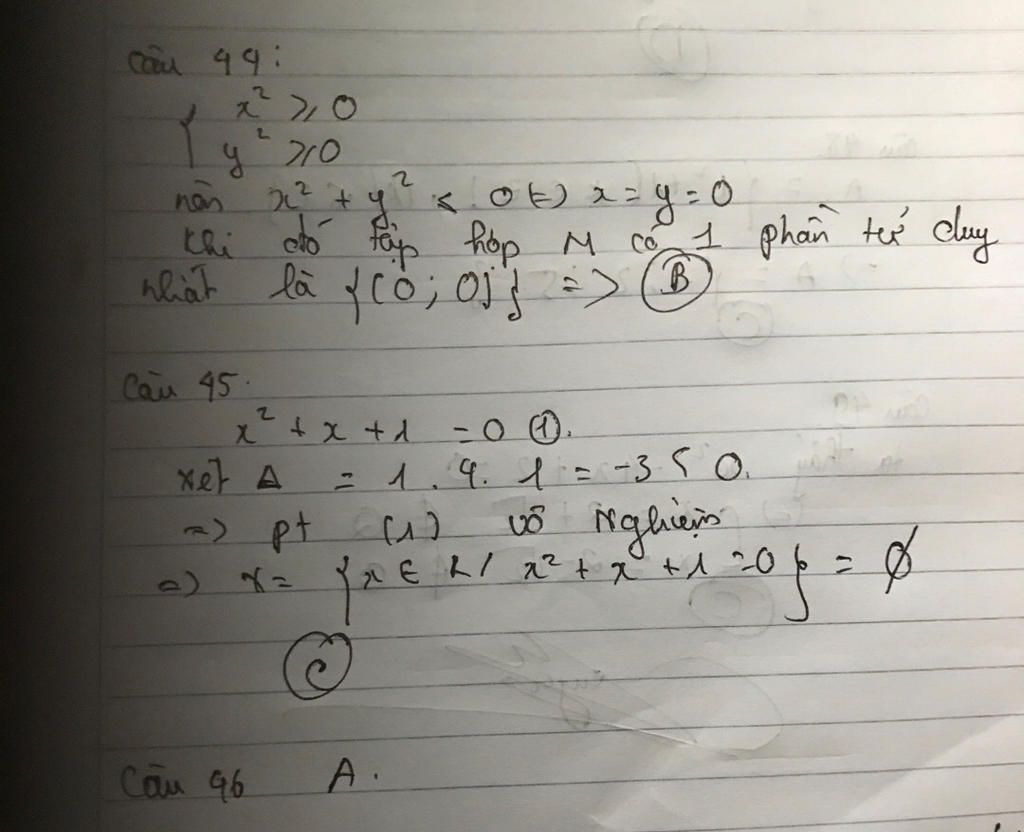 Câu 44:
{ x² ⩾ 0
y² ⩾ 0
nên x² + y² ⩽ 0 (=) x = y = 0
Khi đó tập hợp M có 1 phần tử duy
nhất là {(0; 0)} => B
Câu 45.
x² + x + 1 = 0 (1).
xét Δ = 1 . 4. 1 = -3 < 0.
=> pt (1) vô nghiệm
=> X = {x ∈ R / x² + x + 1 = 0} = ∅
C
Câu 46 A.